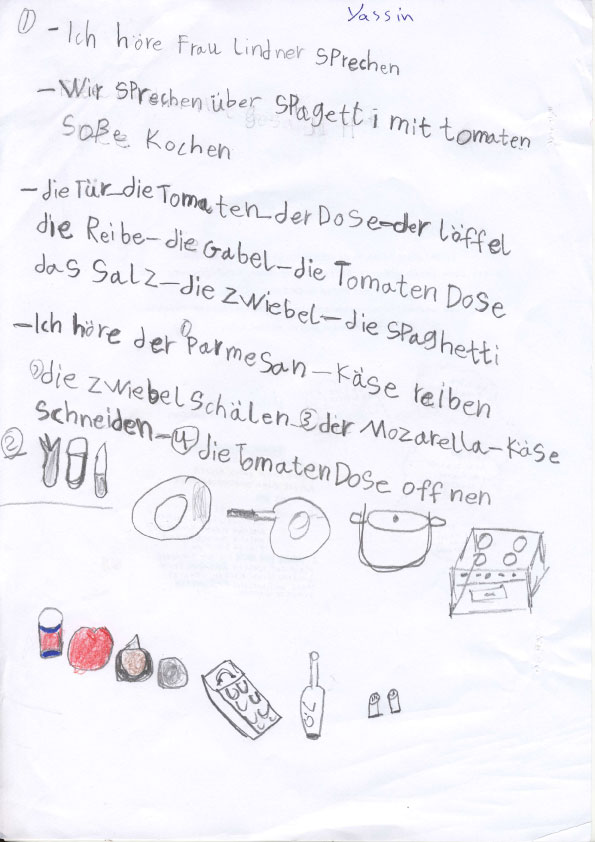 Yassin
① - Ich höre Frau Lindner sprechen
- Wir sprechen über SPagetti mit tomaten
Soße Kochen
- die Tür - die Tomaten - der Dose - der löffel
die Reibe - die Gabel - die Tomaten Dose
das Salz - die zwiebel - die SPaghetti
- Ich höre der ① Parmesan - Käse reiben
② die zwiebel Schälen ③ der Mozarella - Käse
Schneiden - ④ die Tomaten Dose offnen
②